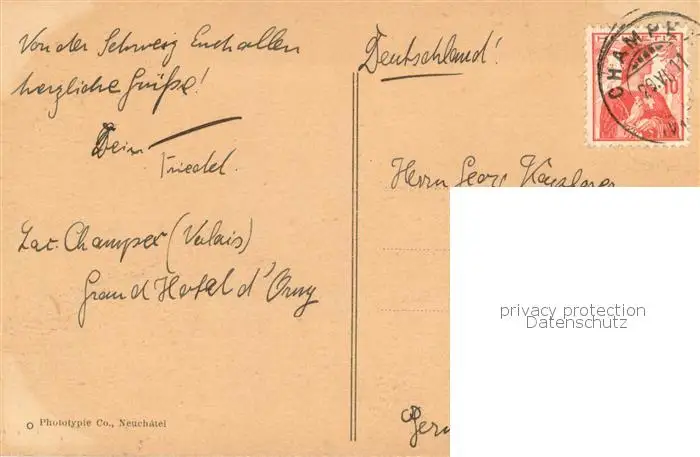 Von der Schweiz Euch allen
herzliche Grüße!
Dein
Friedel.
Lac. Champex (Valais)
Grand Hotel d'Orny
Phototypie Co., Neuchâtel
Deutschland!
CHAMPEX
29.VII.11
10
Herrn Georg
privacy protection
Datenschutz